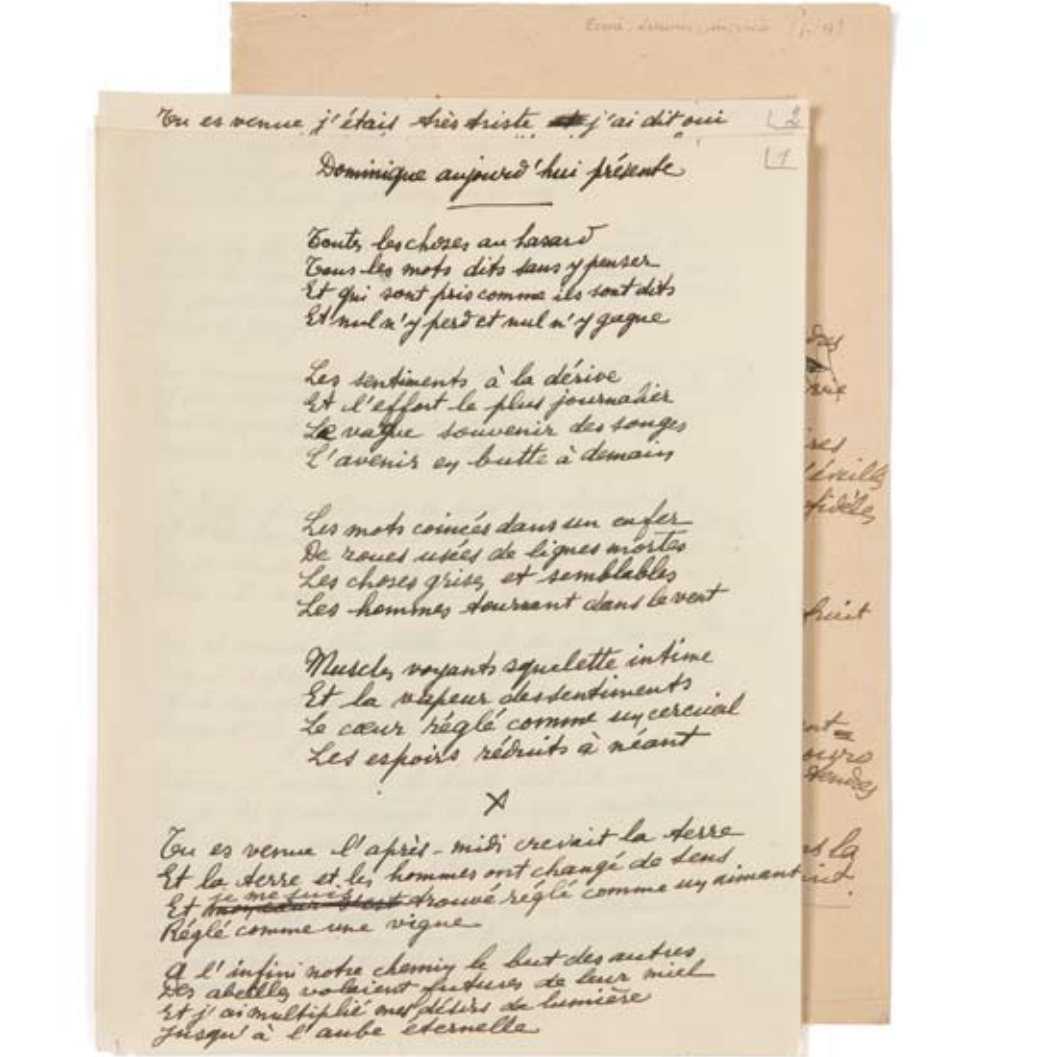 Tu es venue j'étais très triste j'ai dit oui
2
Dominique aujourd'hui présente
1
Toutes les choses au hasard
Tous les mots dits sans y penser
Et qui sont pris comme ils sont dits
Et nul n'y perd et nul n'y gagne
Les sentiments à la dérive
Et l'effort le plus journalier
Le vague souvenir des songes
L'avenir en butte à demain
Les mots coincés dans un enfer
De roues usées de lignes mortes
Les choses grises et semblables
Les hommes tournant dans le vent
Muscles voyants squelette intime
Et la vapeur des sentiments
Le cœur réglé comme un cercueil
Les espoirs réduits à néant
X
Tu es venue l'après-midi crevait la terre
Et la terre et les hommes ont changé de sens
Et je me suis trouvé réglé comme un aimant
Réglé comme une vigne
A l'infini notre chemin le but des autres
Des abeilles volaient futures de leur miel
Et j'ai multiplié mes désirs de lumière
Jusqu'à l'aube éternelle